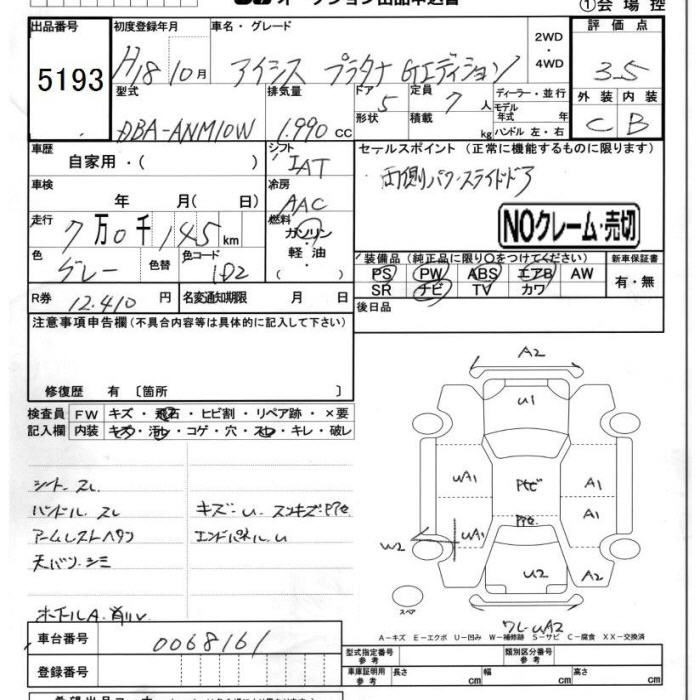 オークション出品申込書
①会場控
出品番号
5193
初度登録年月
H18 10月
車名・グレード
アイシス プラタナ Gエディション
2WD
・
4WD
評価点
3.5
外装 内装
C B
型式
DBA-ANM10W
排気量
1.990 cc
ドア
5
形状
定員
7 人
積載
kg
ディーラー・並行
モデル
年式 年
ハンドル 左・右
車歴
自家用・( )
シフト
IAT
セールスポイント (正常に機能するものに限ります)
両側パワースライドドア
NOクレーム・売切
車検
年 月( 日)
冷房
AAC
走行
7万0千145km
燃料
ガソリン
・
軽油
( )
色
グレー
色替
色コード
1D2
装備品 (純正品に限り○をつけてください)
PS PW ABS エアB AW
SR ナビ TV カワ
新車保証書
有・無
R券
12.410 円
名変通知期限 月 日
後日品
注意事項申告欄(不具合内容等は具体的に記入して下さい)
修復歴 有 〔箇所 〕
検査員
記入欄
FW キズ・飛石・ヒビ割・リペア跡・×要
内装 キズ・汚レ・コゲ・穴・スレ・キレ・破レ
シート スレ
ハンドル スレ
アームレストヘタリ
天バリ シミ
キズ・U
エンドパネル U
A2
U1
UA1
A1
A1
UA1
W2
U2
A2
スペア
A-キズ E-エクボ U-凹み W-補修跡 S-サビ C-腐食 XX-交換済
車台番号
0068161
登録番号
型式指定番号
参考
類別区分番号
参考
車庫証明用
参考
長さ cm
幅 cm
高さ cm